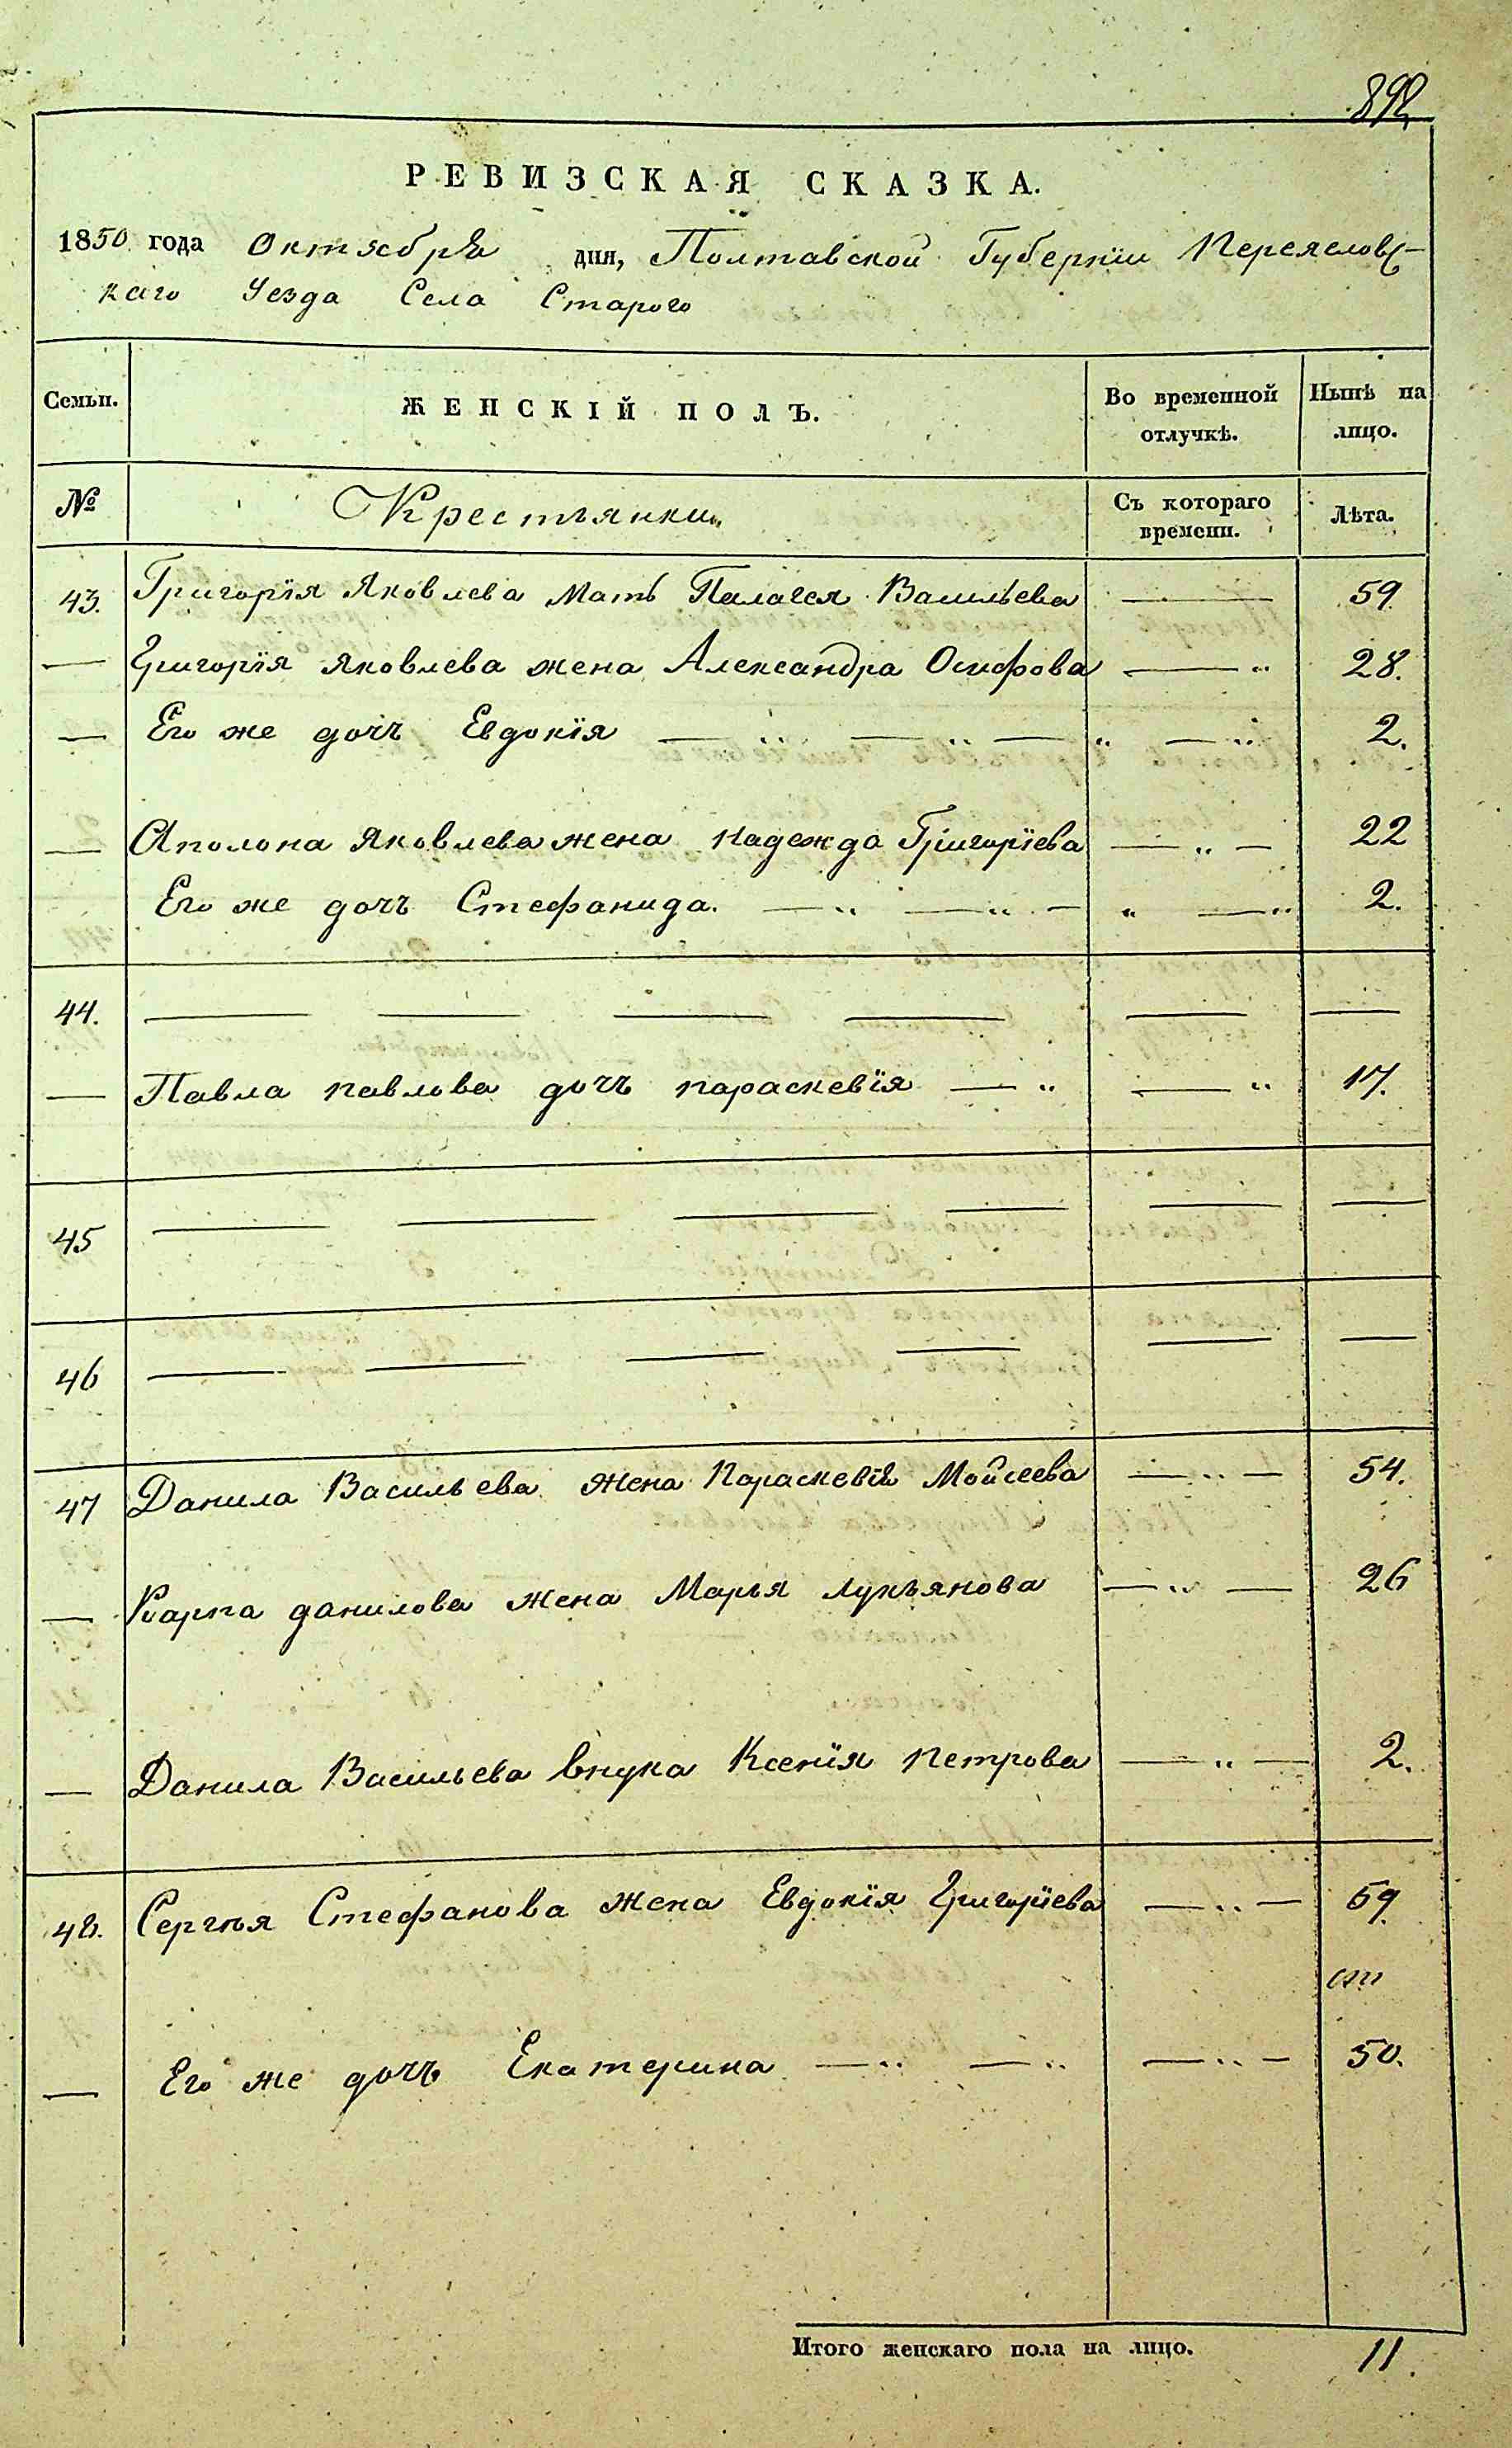 892
РЕВИЗСКАЯ СКАЗКА.
1850 года Октября дня, Полтавской Губерніи Переясловс-
каго Уезда Села Старого
Семьи. ЖЕНСКІЙ ПОЛЪ. Во временной отлучкѣ. Нынѣ на лицо.
№ Крестьянки Съ котораго времени. Лѣта.
43. Григорія Яковлева Мать Палагея Васильева — 59.
— Григорія Яковлева жена Александра Осифова — " 28.
— Его же дочъ Евдокія — " — " — " — " 2.
— Аполона Яковлева жена Надежда Григоріева — " — 22
Его же дочъ Стефанида. — " — " — " — " 2.
44. — — — — — —
— Павла павлова дочъ параскевія — " — " 17.
45 — — — — — —
46 — — — — — —
47 Данила Васильева жена Параскевія Мойсеева — " — 54.
— Карпа данилова жена Марья лукъянова — " — 26
— Данила Васильева внука Ксенія Петрова — " — 2.
48. Сергѣя Стефанова жена Евдокія Григоріева — " — 59.
— Его же дочъ Екатерина — " — " — " — 50.
Итого женскаго пола на лицо. 11.